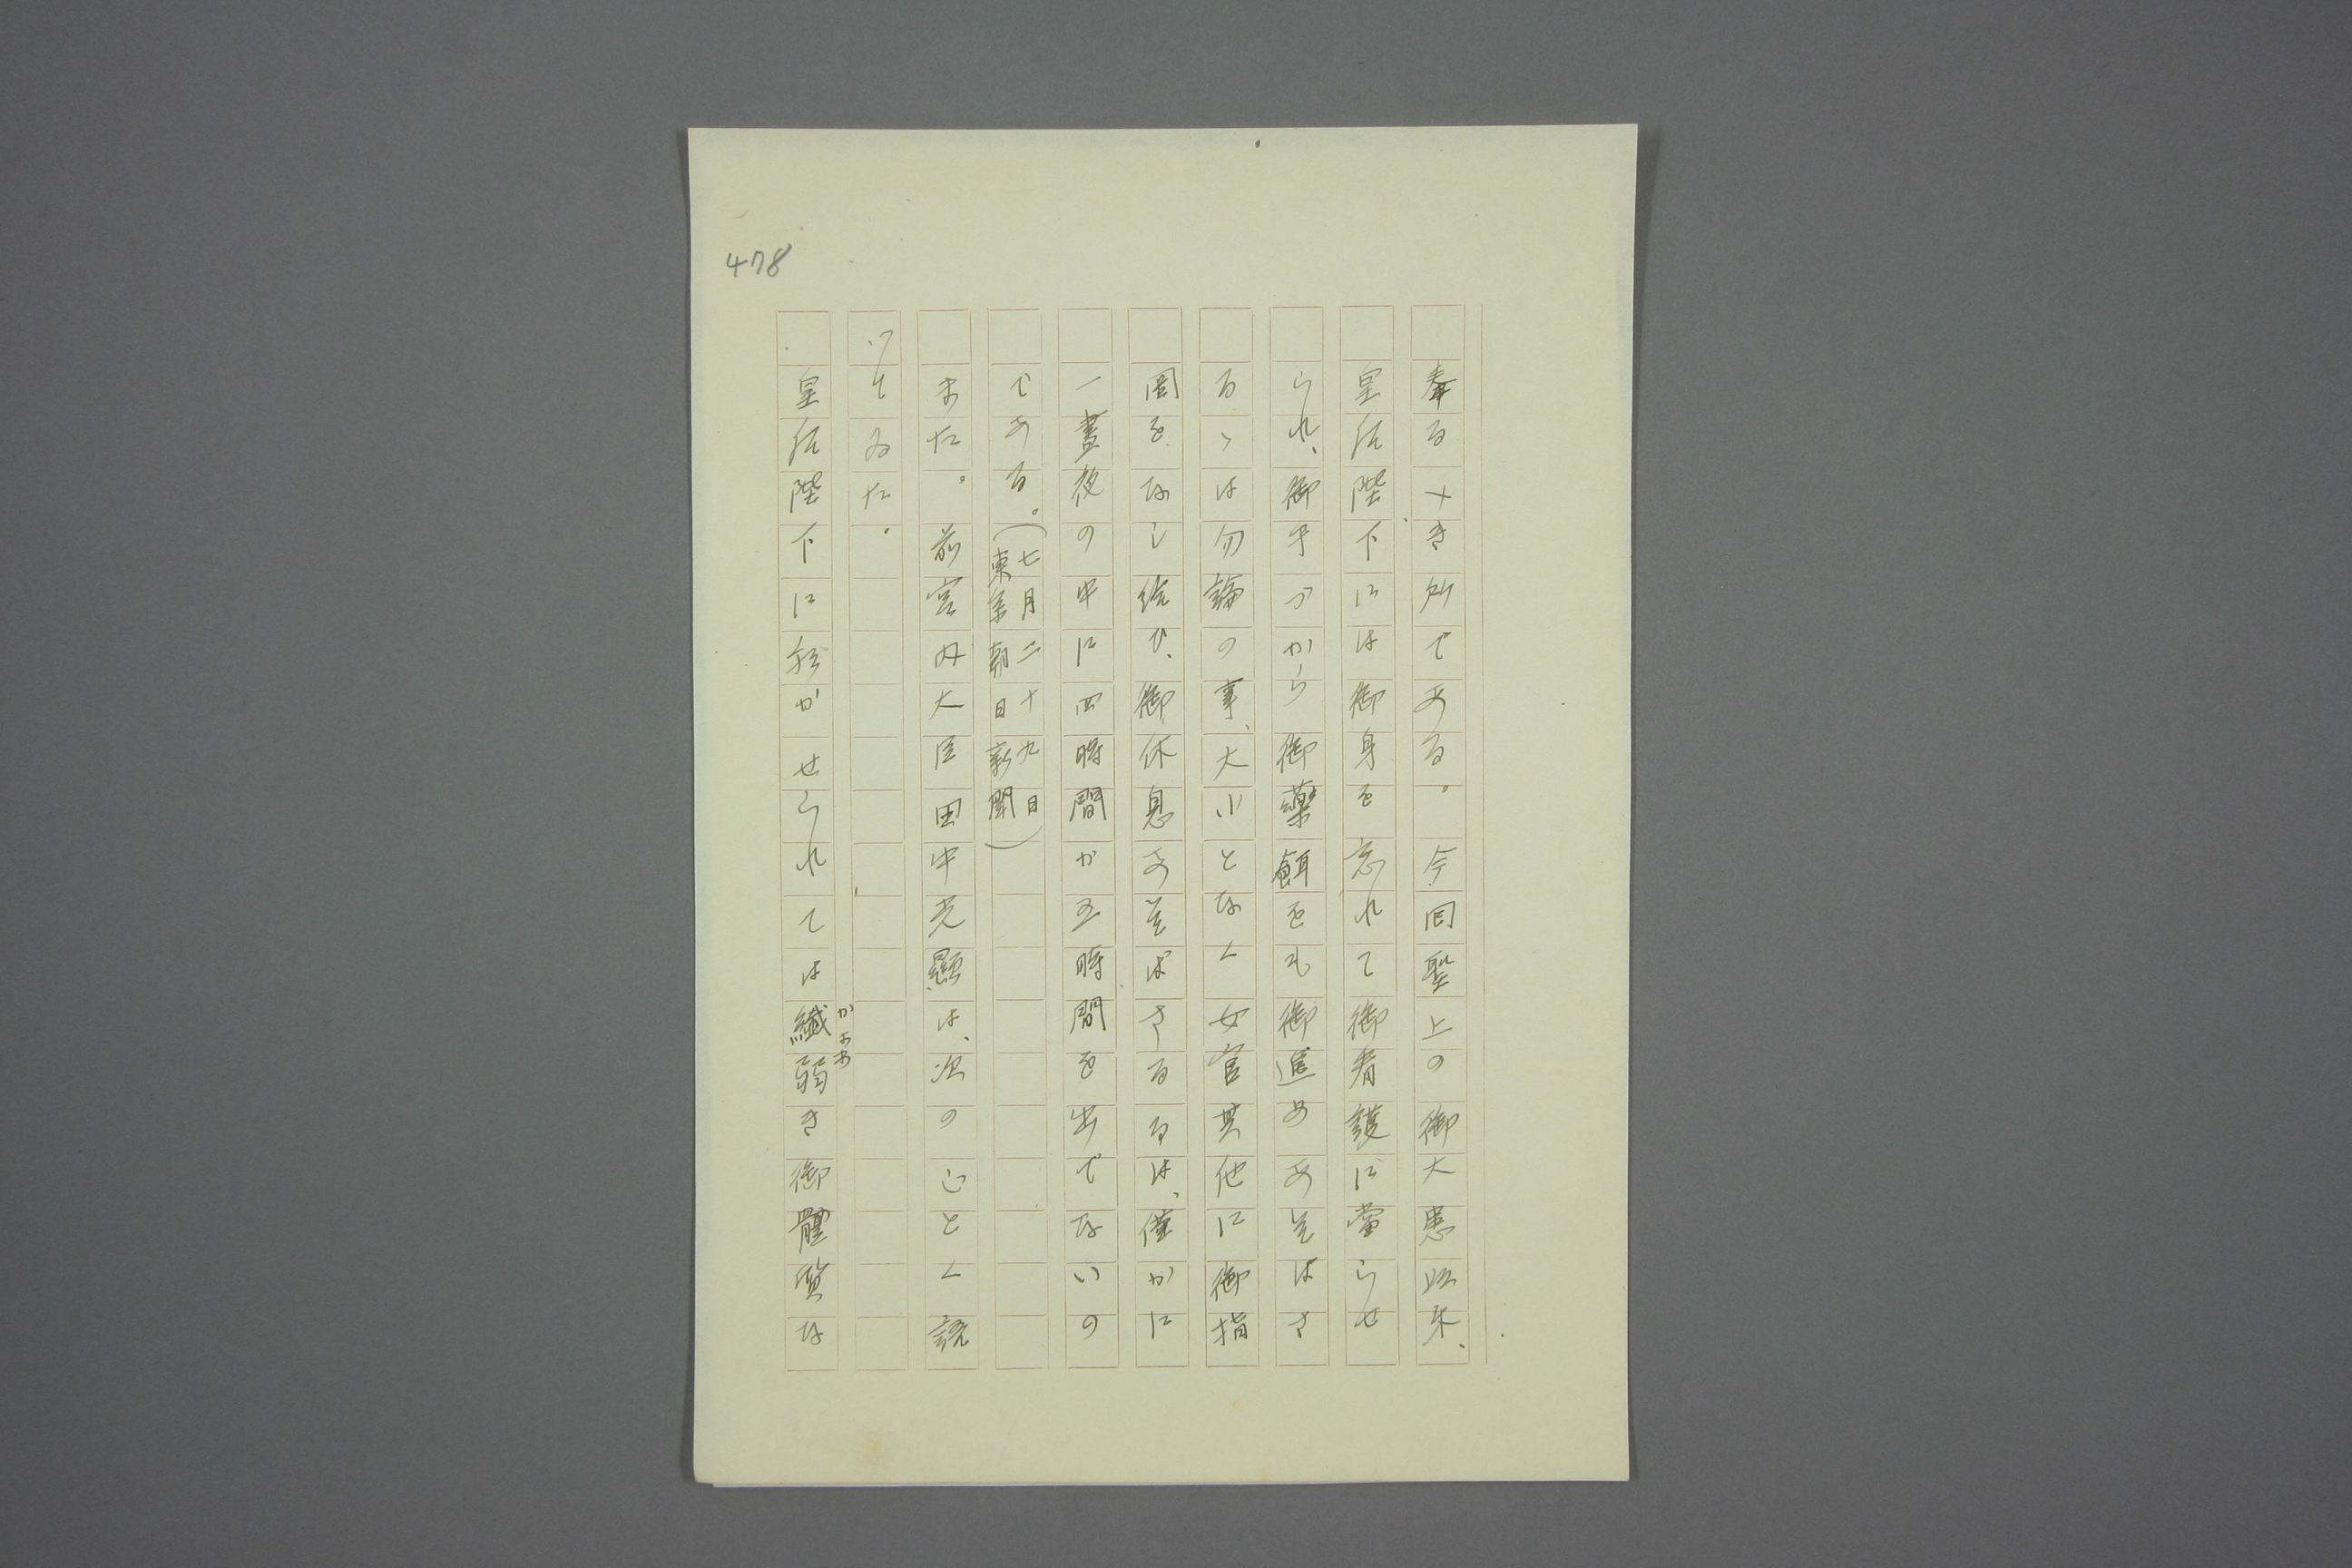 478
奉るべき所である。今回聖上の御大患以来、
皇后陛下には御身を忘れて御看護に当らせ
られ、御手づから御藥餌をも御進めあそばさ
るゝは勿論の事、大小となく女官其他に御指
圖をなし給ひ、御休息あそばさるゝは、僅かに
一晝夜の中に四時間か五時間を出でないの
である。(七月二十九日東京朝日新聞)
また。前宮内大臣田中光顯は、次の如く語
つてゐた。
皇后陛下に於かせられては纖弱き御體質な
かよわ